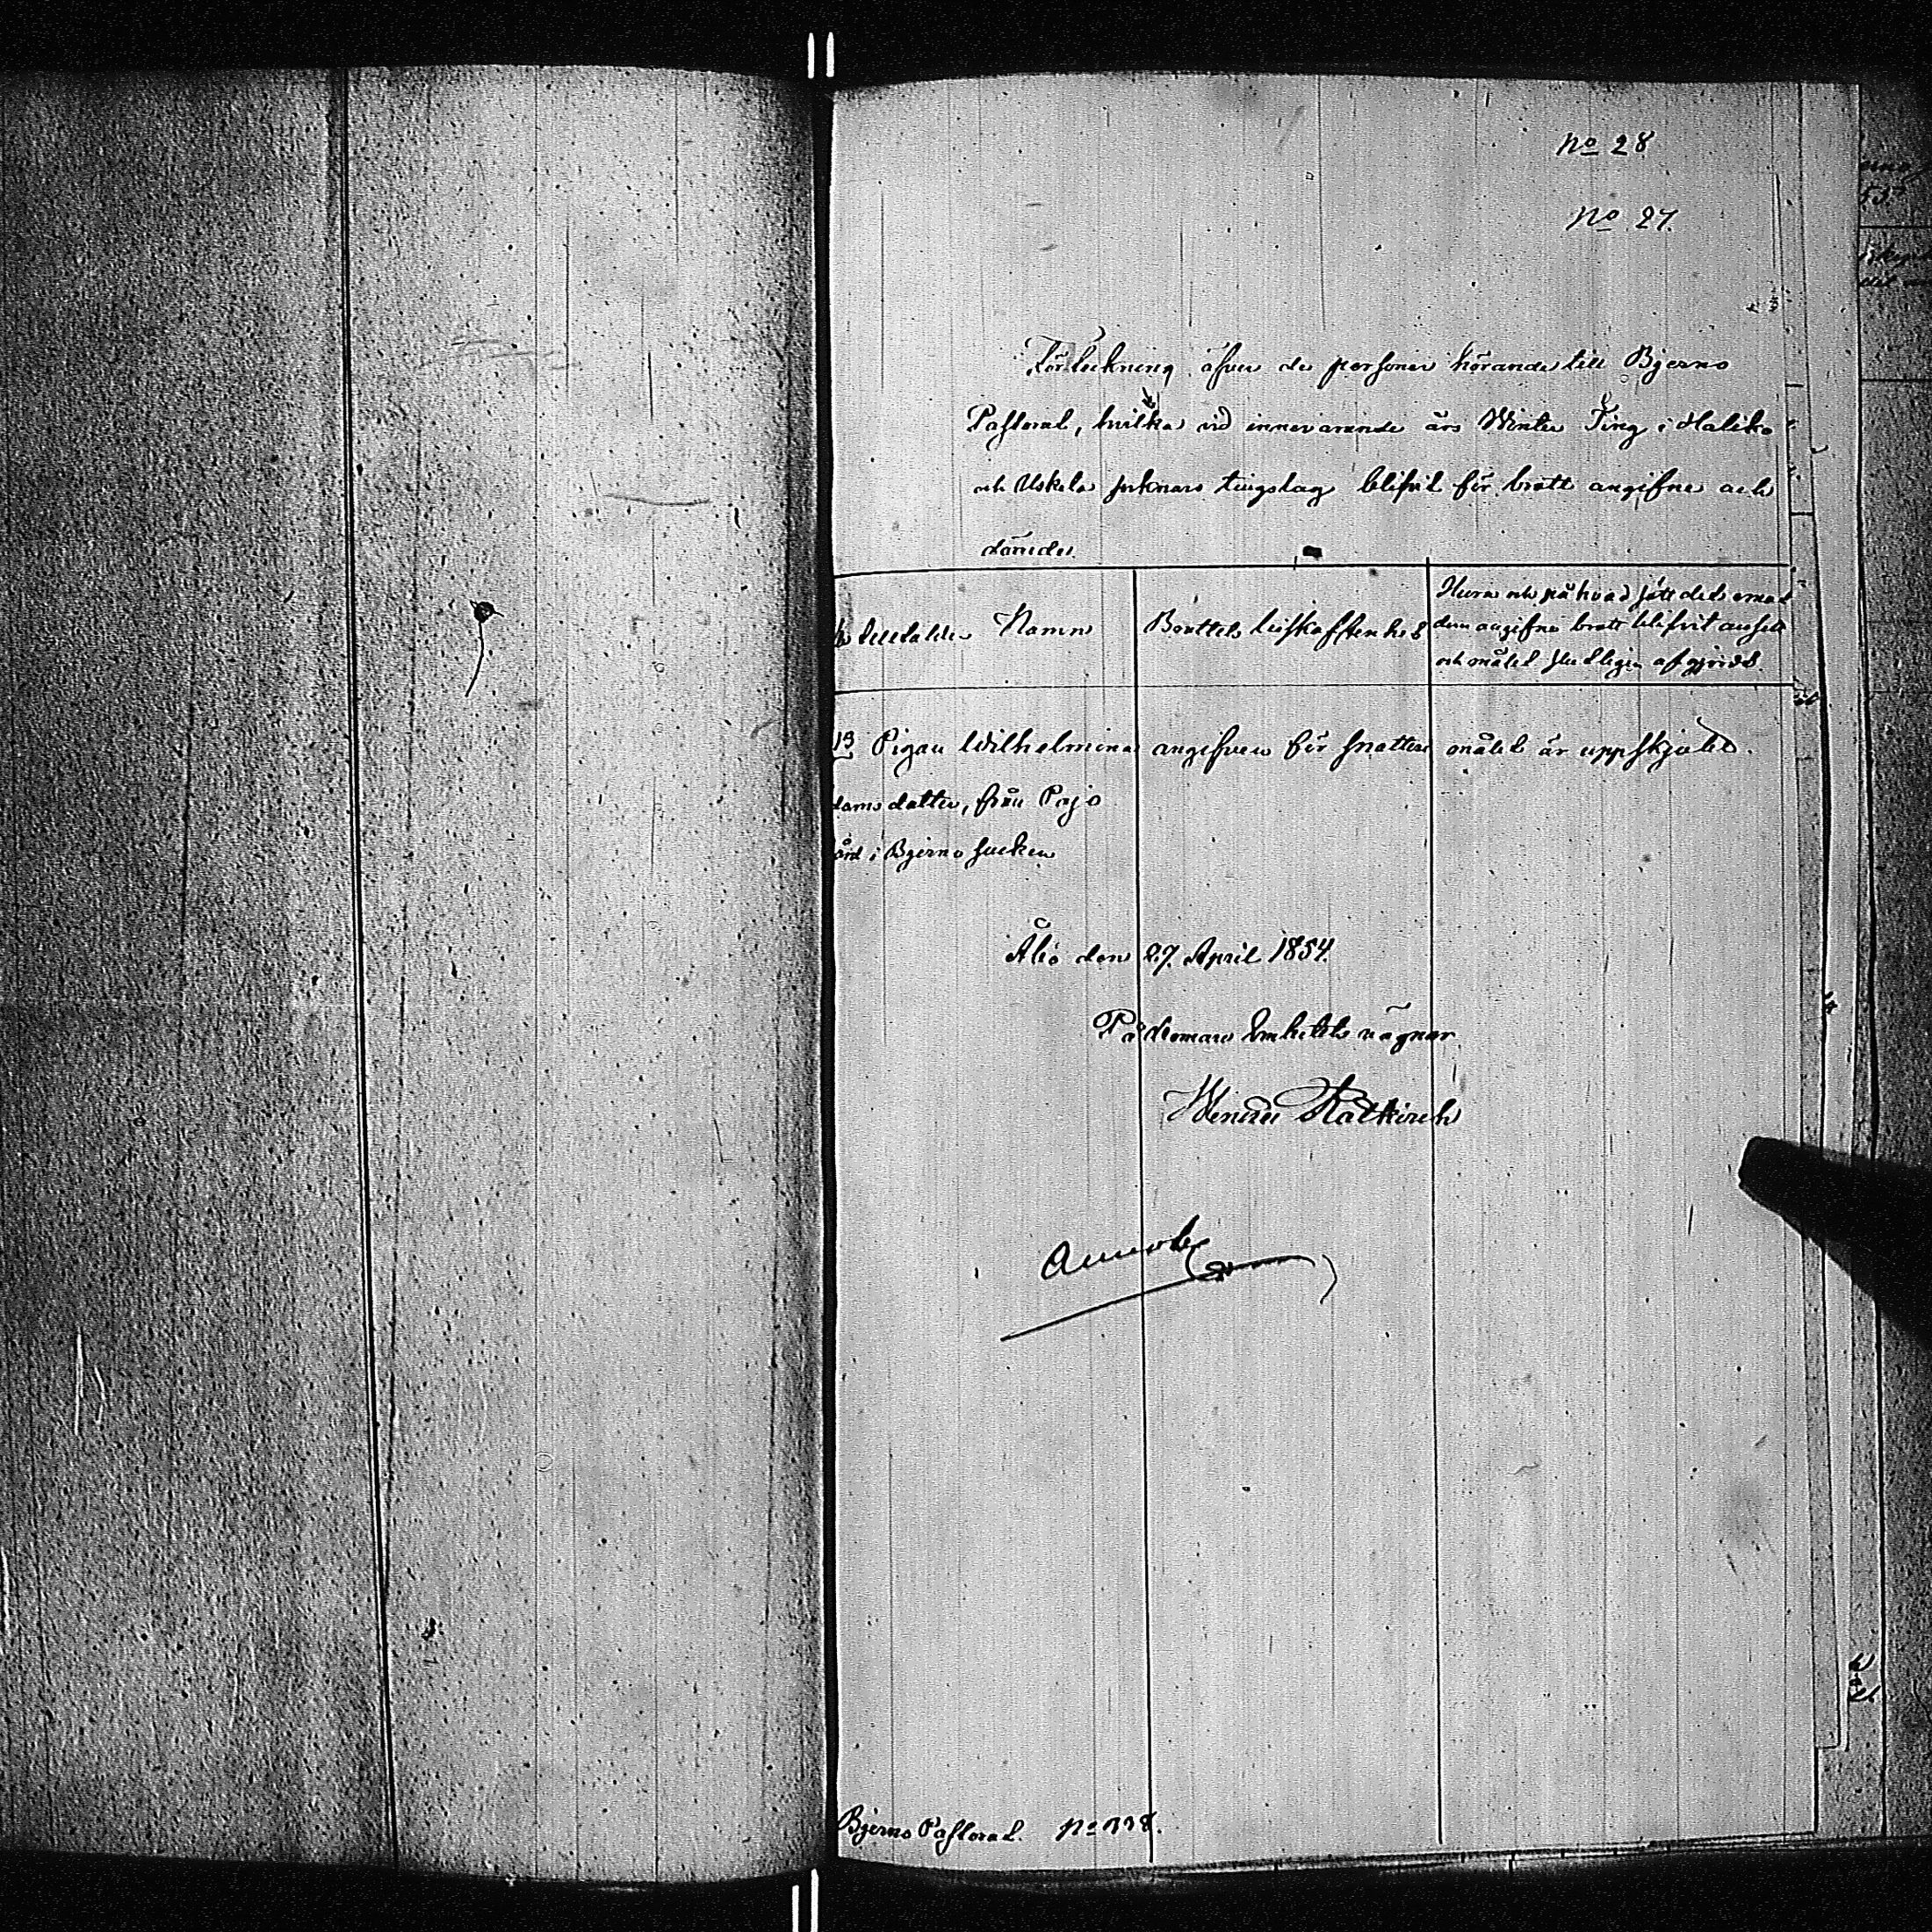 No 28
No 27.
Förteckning öfver de personer hörande till Bjerno
Pastorat, hvilka vid innevarande års Winter Ting i Haliko
och Uskela socknars tingslag blifvit för brott angifne och
dömde.
Namn
Brottets beskaffenhet
Huru och på hvad sätt det emot
dem angifne brott blifvit ansedt
och målet slutligen afgjordt.
Pigan Wilhelmina
angifven för snatteri
målet är uppskjutet.
damsdotter, från Pajo
ård i Bjerno socken
Åbo den 27 April 1854.
På domare Embetets vägnar
Bjerno Pastorat. No 338.